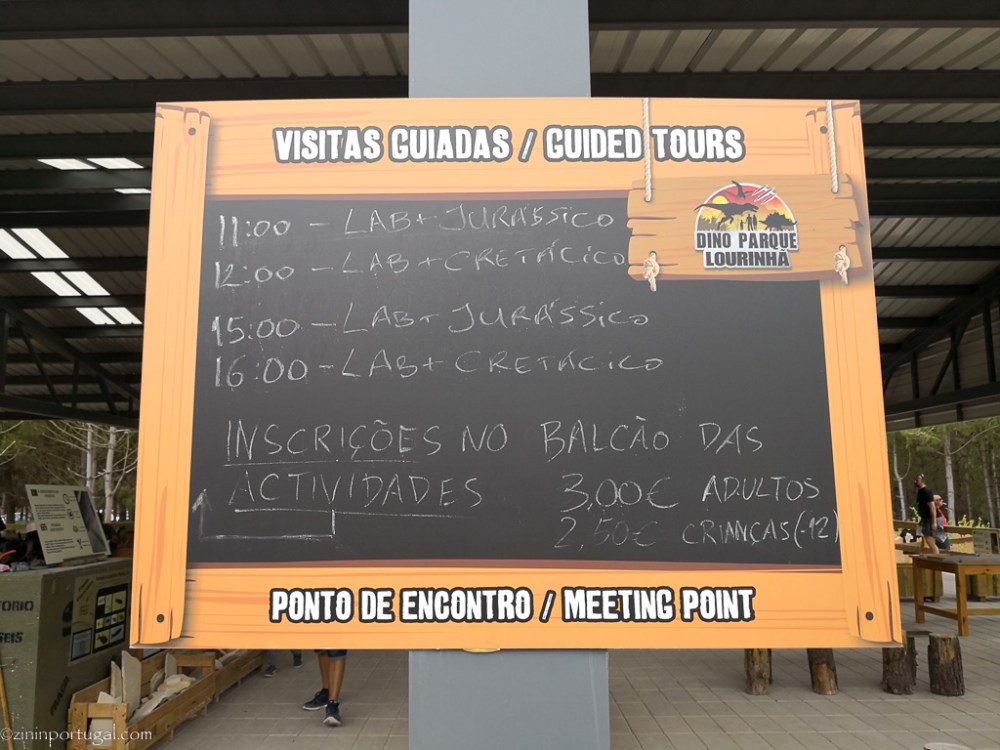 VISITAS GUIADAS / GUIDED TOURS
DINO PARQUE
LOURINHÃ
11:00 - LAB + JURÁSSICO
12:00 - LAB + CRETÁCICO
15:00 - LAB + JURÁSSICO
16:00 - LAB + CRETÁCICO
INSCRIÇÕES NO BALCÃO DAS
ACTIVIDADES
3,00€ ADULTOS
2,50€ CRIANÇAS (-12)
PONTO DE ENCONTRO / MEETING POINT
©zininportugal.com